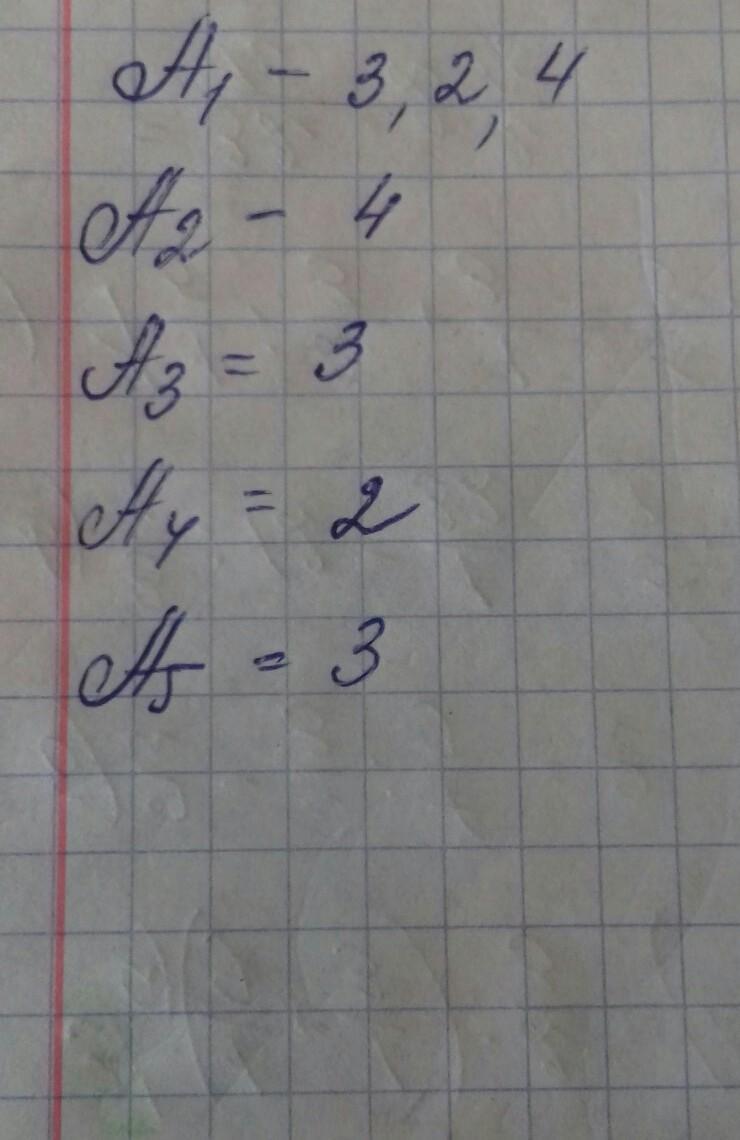 A₁ - 3, 2, 4
A₂ - 4
A₃ = 3
A₄ = 2
A₅ = 3